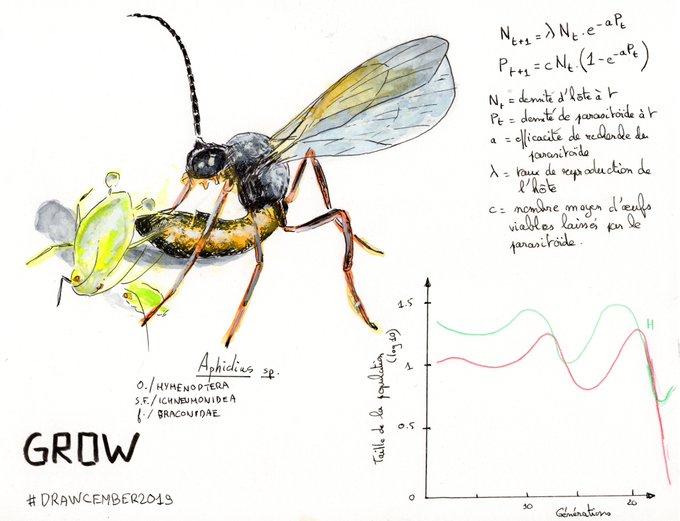 N_{t+1} = λ N_t . e^{-aP_t}
P_{t+1} = c N_t . (1 - e^{-aP_t})
N_t = densité d'hôte à t
P_t = densité de parasitoïde à t
a = efficacité de recherche du
parasitoïde
λ = taux de reproduction de
l'hôte
c = nombre moyen d'œufs
viables laissés par le
parasitoïde.
Aphidius sp.
O./ HYMENOPTERA
S.F./ ICHNEUMONIDEA
f./ BRACONIDAE
GROW
#DRAWCEMBER2019
Taille de la population
(log 10)
1.5
1
0.5
0
H
10
20
Générations